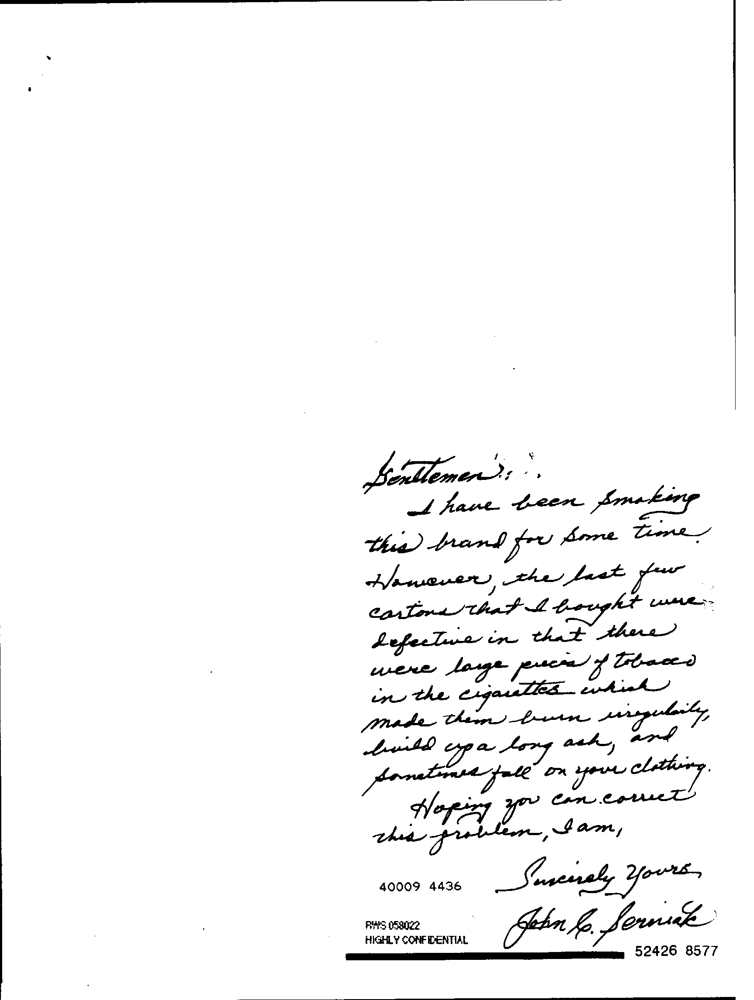 Gentlemen:
I have been smoking
this brand for some time.
However, the last few
cartons that I bought were
defective in that there
were large pieces of tobacco
in the cigarettes which
made them burn irregularily,
build up a long ash, and
sometimes fall on your clothing.
Hoping you can correct
this problem, I am,
Sincerely Yours,
John C. Serniak
40009 4436
RWS 058022
HIGHLY CONFIDENTIAL
52426 8577